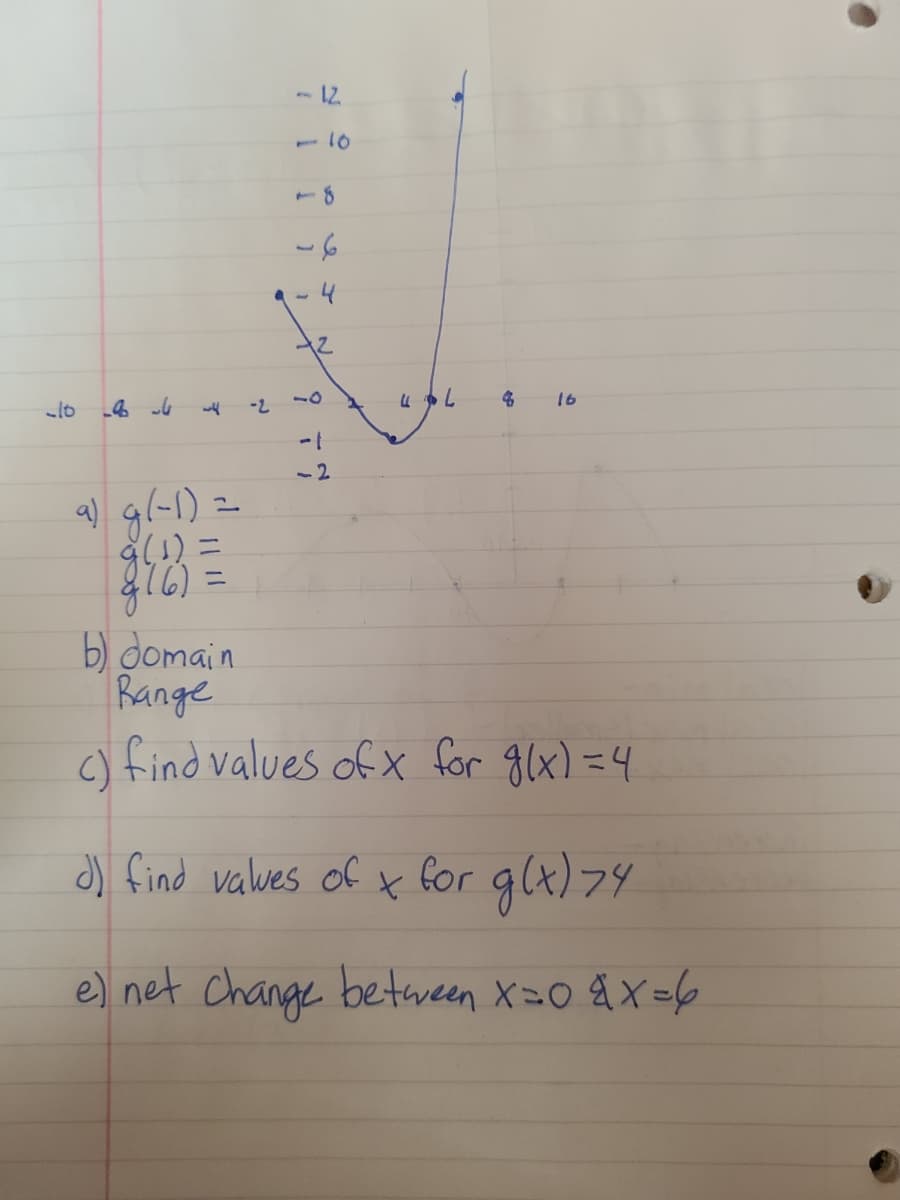 - 12
- 10
- 8
- 6
- 4
2
-10 -8 -6 -4 -2 -0 2 4 6 8 10
-1
-2
a) g(-1) =
g(1) =
g(6) =
b) domain
Range
c) find values of x for g(x) = 4
d) find values of x for g(x) > 4
e) net change between x=0 & x=6